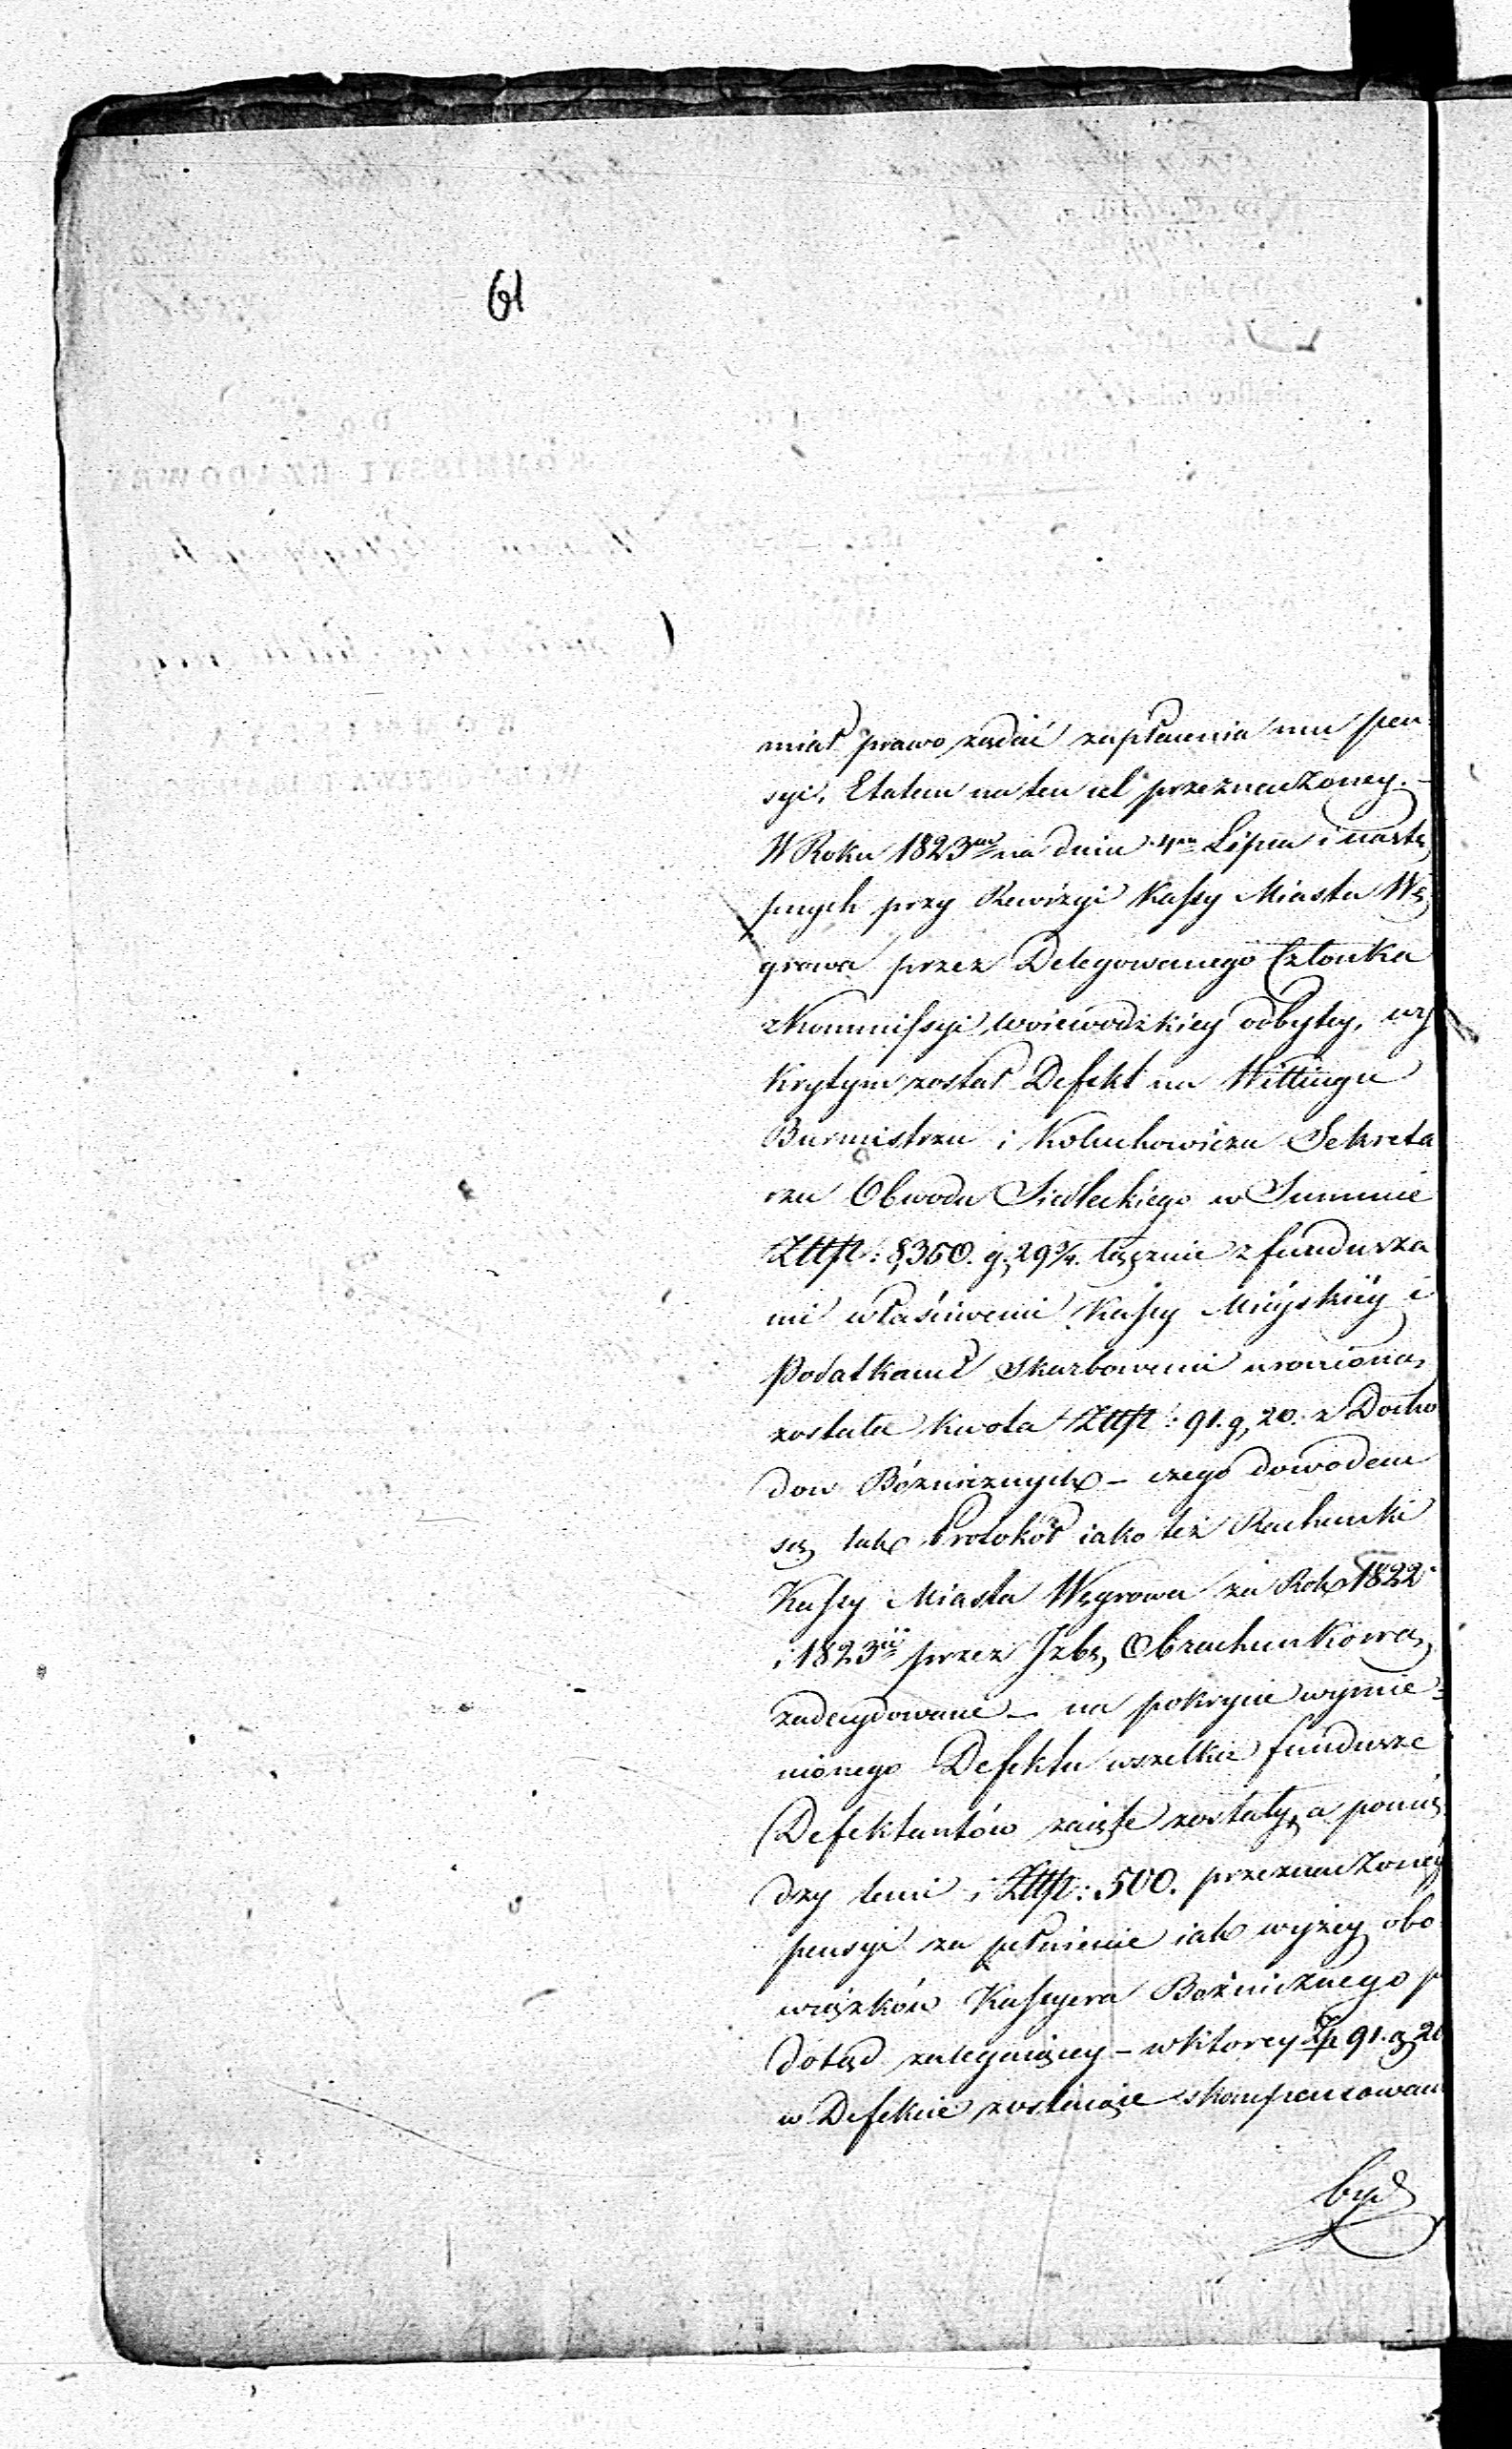 61
miał prawo żądać zapłacenia mu pen
syi, Etatem na ten cel przeznaczoney. –
W Roku 1823 na dniu 4 Lipca i nastę
pnych przy Rewizyi Kassy Miasta Wę
growa przez Delegowanego Członka
z Kommissyi Woiewodzkiey odbytey, wy
krytym został Defekt na Wittingu
Burmistrzu i Koluchowiczu Sekreta
rzu Obwodu Siedleckiego w Summie
Złtp: 8,350. g. 29¾. łącznie z fundusza
mi właściwemi Kassy Mieyskiey i
Podatkami Skarbowemi uroniona
została kwota Złtp: 91. g, 20. z Docho
dow Bóżniczych – czego dowodem
są tak Protokół iako też Rachunki
Kassy Miasta Węgrowa za Rok 1822
i 1823 przez Jzbę Obrachunkową
zadecydowane – na pokrycie wymie=
nionego Defektu wszelkie fundusze
Defektantów zaięte zostały, a pomię
dzy temi i Złtp: 500. przeznaczoney
pensyi za pełnienie iak wyżey obo
wiązków Kassyera Bóżnicznego
dotąd zalegaiącey – w ktorey Zp 91. g 20
w Defekcie zostaiące skompensowane
być